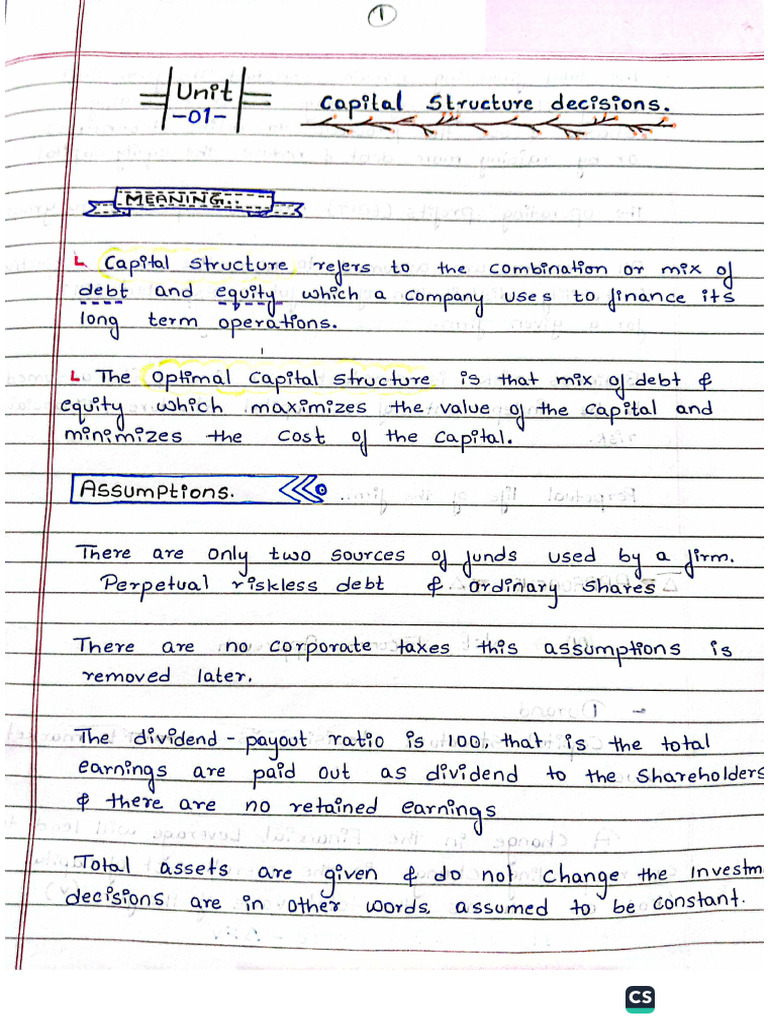 1
Unit
-01-
Capital Structure decisions.
MEANING..
Capital structure refers to the combination or mix of
debt and equity which a company uses to finance its
long term operations.
The Optimal Capital structure is that mix of debt &
equity which maximizes the value of the capital and
minimizes the cost of the capital.
Assumptions.
There are only two sources of funds used by a firm.
Perpetual riskless debt & ordinary shares
There are no corporate taxes this assumptions is
removed later.
The dividend - payout ratio is 100, that is the total
earnings are paid out as dividend to the Shareholders
& there are no retained earnings
Total assets are given & do not change the Investm
decisions are in other words, assumed to be constant.
CS